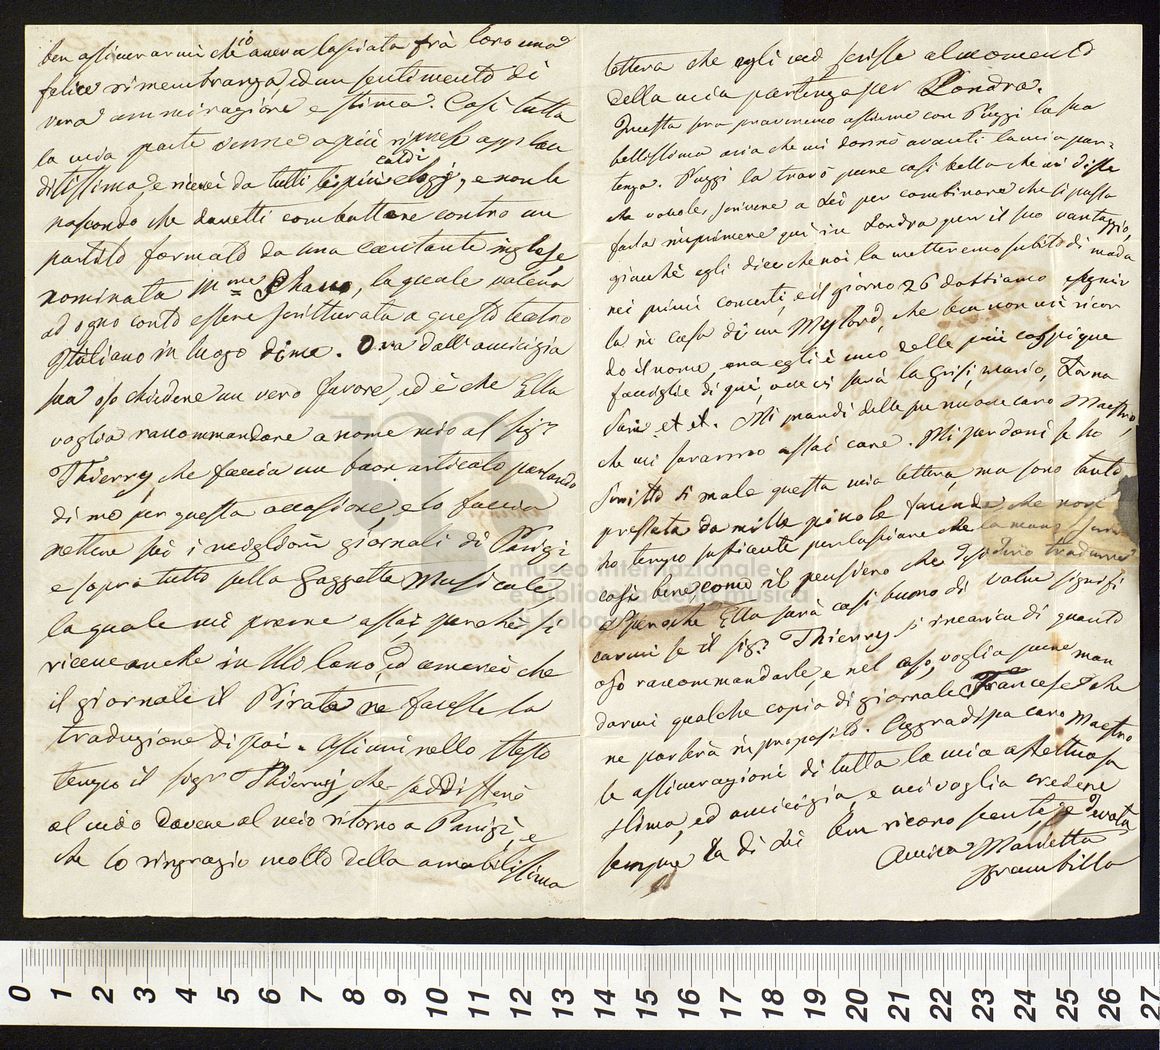 ben assicurarmi ch'io aveva lasciata frà loro una
felice rimembranza, ed un sentimento di
vera ammirazione e stima. Così tutta
la mia parte venne a più riprese applau
ditissima, e ricevei da tutti i più caldi elogj, e non le
nascondo che dovetti combattere contro un
partito formato da una cantante inglese
nominata M.me Shaw, la quale voleva
ad ogni conto essere scritturata a questo teatro
Italiano in luogo di me. Ora dall'amicizia
sua oso chiedere un vero favore, ed è che Ella
voglia raccommandare a nome mio al Sig.r
Thierry, che faccia un buon articolo parlando
di me per questa occasione, e lo faccia
mettere sui i migliori giornali di Parigi
e sopra tutto sulla Gazzetta Musicale,
la quale mi preme assai perché si
riceve anche in Milano, ed amerei che
il giornale il Pirata ne facesse la
traduzione di poi. Assicuri nello stesso
tempo il Sig.r Thierry, che soddisferò
al mio dovere al mio ritorno a Parigi, e
che lo ringrazio molto della amabilissima
lettera che egli mi scrisse al momento
della mia partenza per Londra.
Questa sera proveremo assieme con Puzzi la sua
bellissima aria che mi donò avanti la mia par-
tenza. Puzzi la trovò pure così bella che mi disse
che voleva scrivere a Lei per combinare che si possa
farla imprimere quì in Londra per il suo vantaggio,
giacché egli dice che noi la metteremo subito di moda
nei primi concerti, e il giorno 26 dobbiamo eseguir
la in casa di un Mylord, che ora non mi ricor
do il nome, ma egli è uno delle più cospique
famiglie di quì, ove ci sarà la Grisi, Mario, Forna
sari et et. Mi mandi delle sue nuove caro Maestro,
che mi saranno assai care. Mi perdoni se ho
scritto sì male questa mia lettera, ma sono tanto
pressata da mille piccole facende che non
ho tempo sufficiente per lasciare che la mano
così bene come il pensiero che
spero che Ella sarà così buono di volermi signifi
carmi se il Sig.r Thierry si incarica di quanto
oso raccommandarle, e nel caso, voglia pure man
darmi qualche copia di giornale Francese che
ne parlerà in proposito. Aggradisca caro Maestro
le assicurazioni di tutta la mia affettuosa
stima, ed amicizia, e mi voglia credere
sempre la di Lei Riconoscente e Devota
Amica Marietta
Brambilla
museo internazionale
e biblioteca della musica
di bologna
0 1 2 3 4 5 6 7 8 9 10 11 12 13 14 15 16 17 18 19 20 21 22 23 24 25 26 27